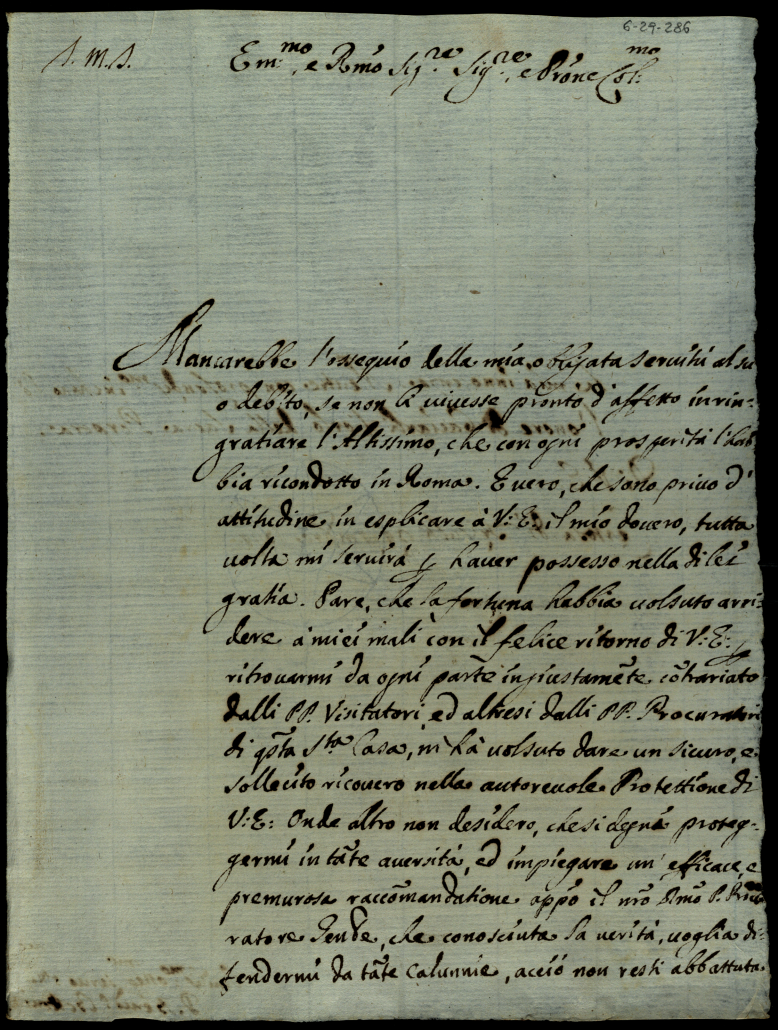 6-29-286
J. M. J.
Em:mo, e Rmo Sig:re Sig:re, e Prone Col:mo
Mancarebbe l'ossequio della mia obligata servitù al su
o debito, se non li vivesse pronto d'affetto in rin-
gratiare l'Altissimo, che con ogni prosperità l'hab
bia ricondotto in Roma. E vero, che sono privo d'
attitudine in esplicare à V: E: il mio dovere, tutta
volta mi servirà p haver possesso nella di lei
gratia. Pare, che la fortuna habbia volsuto arri
dere à miei mali con il felice ritorno di V: E: p
ritrovarmi da ogni parte ingiustamẽte cõtrariato
dalli PP. Visitatori, ed altresi dalli PP. Procuratori
di qsta Sta Casa, mi hà volsuto dare un sicuro, e
sollecito ricovero nella autorevole Protettione di
V: E: Onde altro non desidero, che si degni proteg-
germi in tãte aversità, ed impiegare un' efficace, e
premurosa raccõmandatione appò il nro Rmo P. Procu
ratore Genle, che conosciuta la verità, voglia di-
fendermi da tãte calunnie, acciò non resti abbattuta